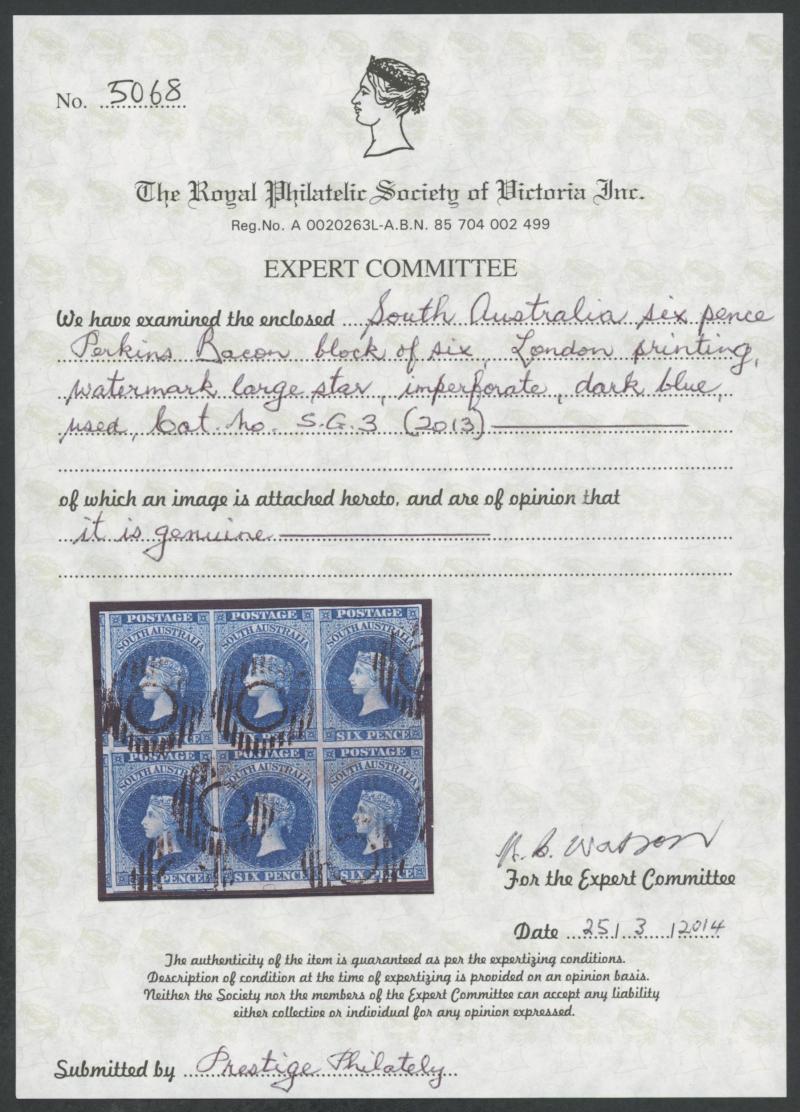 No. 5068
The Royal Philatelic Society of Victoria Inc.
Reg.No. A 0020263L-A.B.N. 85 704 002 499
EXPERT COMMITTEE
We have examined the enclosed South Australia six pence
Perkins Bacon block of six, London printing,
watermark large star, imperforate, dark blue,
used, Cat. no. S.G.3 (2013)
of which an image is attached hereto, and are of opinion that
it is genuine
POSTAGE POSTAGE POSTAGE
SOUTH AUSTRALIA SOUTH AUSTRALIA SOUTH AUSTRALIA
SIX PENCE
POSTAGE POSTAGE POSTAGE
SOUTH AUSTRALIA SOUTH AUSTRALIA SOUTH AUSTRALIA
PENCE SIX PENCE SIX PENCE
R. B. Watson
For the Expert Committee
Date 25/3/2014
The authenticity of the item is guaranteed as per the expertizing conditions.
Description of condition at the time of expertizing is provided on an opinion basis.
Neither the Society nor the members of the Expert Committee can accept any liability
either collective or individual for any opinion expressed.
Submitted by Prestige Philately